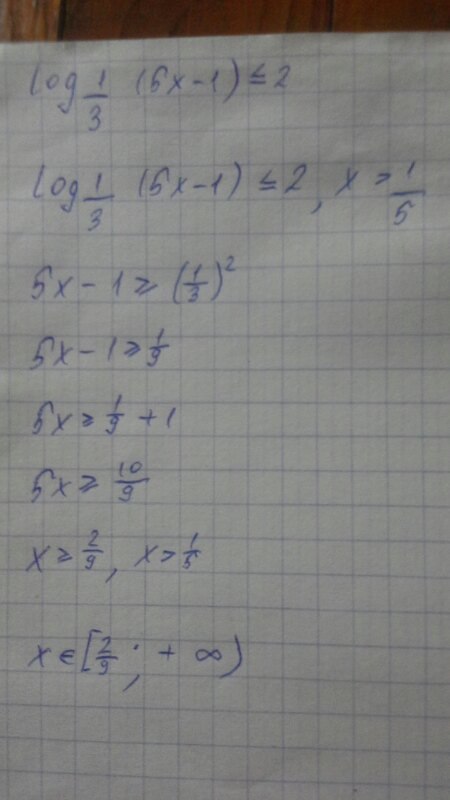 log 1/3 (5x-1) ≤ 2
log 1/3 (5x-1) ≤ 2, x > 1/5
5x - 1 ≥ (1/3)²
5x - 1 ≥ 1/9
5x ≥ 1/9 + 1
5x ≥ 10/9
x ≥ 2/9, x > 1/5
x ∈ [2/9; + ∞)